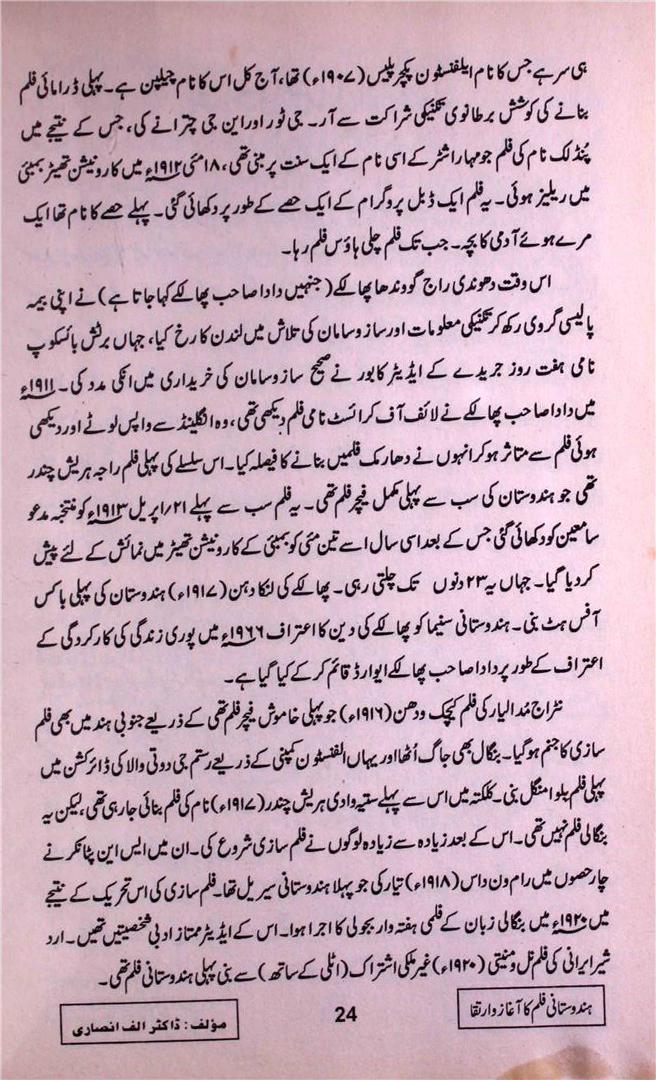 ہی سر ہے جس کا نام ایلفنسٹون پکچر پلیس (۱۹۰۷ء) تھا، آج کل اس کا نام چیلپن ہے۔ پہلی ڈرامائی فلم
بنانے کی کوشش برطانوی تکنیکی شراکت سے آر۔ جی ٹور اور این جی چترانے کی، جس کے نتیجے میں
پُنڈلک نام کی فلم جو مہاراشٹر کے اسی نام کے ایک سنت پر مبنی تھی، ۱۸ مئی ۱۹۱۲ء میں کارونیشن تھیٹر بمبئی
میں ریلیز ہوئی۔ یہ فلم ایک ڈبل پروگرام کے ایک حصے کے طور پر دکھائی گئی۔ پہلے حصے کا نام تھا ایک
مرے ہوئے آدمی کا بچہ۔ جب تک فلم چلی ہاؤس فلم رہا۔
اس وقت دھونڈی راج گووندھا پھالکے (جنہیں دادا صاحب پھالکے کہا جاتا ہے) نے اپنی بیمہ
پالیسی گروی رکھ کر تکنیکی معلومات اور ساز و سامان کی تلاش میں لندن کا رخ کیا، جہاں برٹش بائسکوپ
نامی ہفت روز جریدے کے ایڈیٹر کابور نے صحیح ساز و سامان کی خریداری میں انکی مدد کی۔ ۱۹۱۱ء
میں دادا صاحب پھالکے نے لائف آف کرائسٹ نامی فلم دیکھی تھی، وہ انگلینڈ سے واپس لوٹے اور دیکھی
ہوئی فلم سے متاثر ہو کر انہوں نے دھارمک فلمیں بنانے کا فیصلہ کیا۔ اس سلسلے کی پہلی فلم راجہ ہریش چندر
تھی جو ہندوستان کی سب سے پہلی مکمل فیچر فلم تھی۔ یہ فلم سب سے پہلے ۲۱/اپریل ۱۹۱۳ء کو منتجہ مدعو
سامعین کو دکھائی گئی جس کے بعد اسی سال اسے تین مئی کو بمبئی کے کارونیشن تھیٹر میں نمائش کے لئے پیش
کر دیا گیا۔ جہاں یہ ۲۳ دنوں تک چلتی رہی۔ پھالکے کی لنکا دہن (۱۹۱۷ء) ہندوستان کی پہلی باکس
آفس ہٹ بنی۔ ہندوستانی سنیما کو پھالکے کی دین کا اعتراف ۱۹۶۶ء میں پوری زندگی کی کارکردگی کے
اعتراف کے طور پر دادا صاحب پھالکے ایوارڈ قائم کر کے کیا گیا ہے۔
نٹراج مُدالیار کی فلم کیچک ودھن (۱۹۱۶ء) جو پہلی خاموش فیچر فلم تھی کے ذریعے جنوبی ہند میں بھی فلم
سازی کا جنم ہو گیا۔ بنگال بھی جاگ اُٹھا اور یہاں الفنسٹون کمپنی کے ذریعے رستم جی دوتی والا کی ڈائرکشن میں
پہلی فلم بلوا منگل بنی۔ کلکتہ میں اس سے پہلے ستیہ وادی ہریش چندر (۱۹۱۷ء) نام کی فلم بنائی جا رہی تھی، لیکن یہ
بنگالی فلم نہیں تھی۔ اس کے بعد زیادہ سے زیادہ لوگوں نے فلم سازی شروع کی۔ ان میں ایس این پٹانکر نے
چار حصوں میں رام ون داس (۱۹۱۸ء) تیار کی جو پہلا ہندوستانی سیریل تھا۔ فلم سازی کی اس تحریک کے نتیجے
میں ۱۹۲۰ء میں بنگالی زبان کے فلمی ہفتہ وار بجولی کا اجرا ہوا۔ اس کے ایڈیٹر ممتاز ادبی شخصیتیں تھیں۔ ارد
شیر ایرانی کی فلم نل ومنیتی (۱۹۲۰ء) غیر ملکی اشتراک (اٹلی کے ساتھ) سے بنی پہلی ہندوستانی فلم تھی۔
ہندوستانی فلم کا آغاز و ارتقا
24
مؤلف: ڈاکٹر الف انصاری